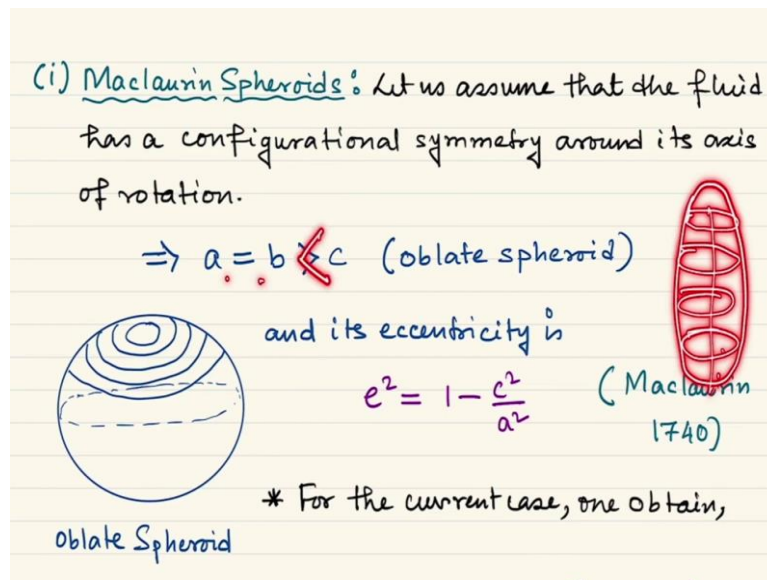 (i) Maclaurin Spheroids: Let us assume that the fluid
has a configurational symmetry around its axis
of rotation.
=> a = b > c (oblate spheroid)
and its eccentricity is
e² = 1 - c²/a² (Maclaurin
1740)
* For the current case, one obtain,
Oblate Spheroid